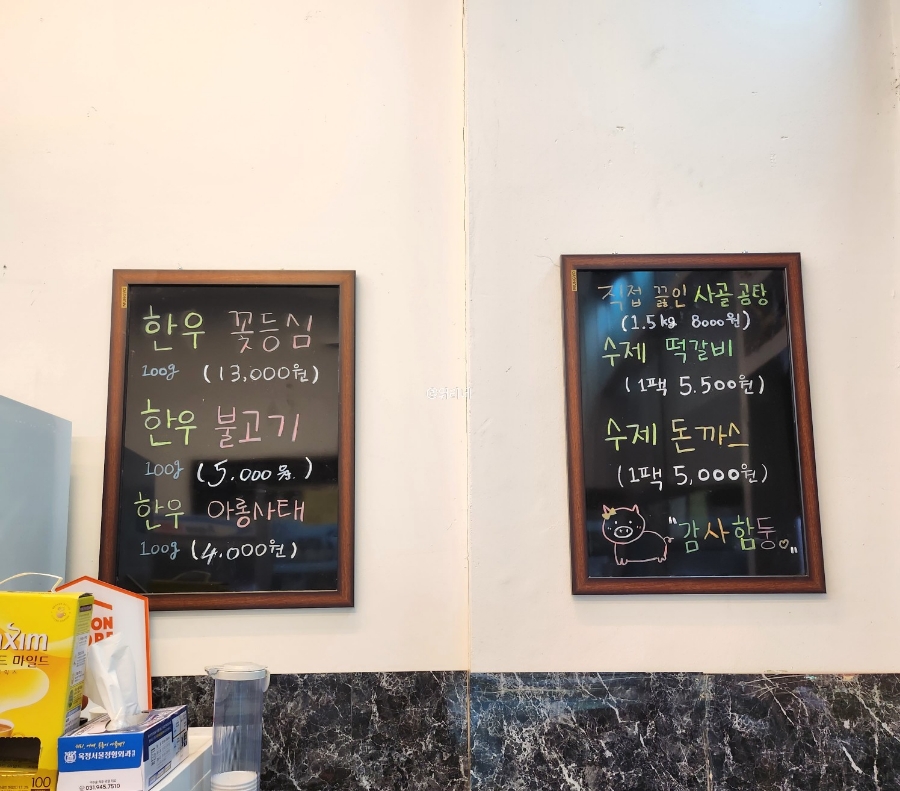 한우 꽃등심
100g (13,000원)
한우 불고기
100g (5.000원)
한우 아롱사태
100g (4.000원)
직접 끓인 사골곰탕
(1.5kg 8000원)
수제 떡갈비
(1팩 5.500원)
수제 돈까스
(1팩 5,000원)
"감사함둥♡"
마일드
100
옥정서울정형외과
031.945.7510